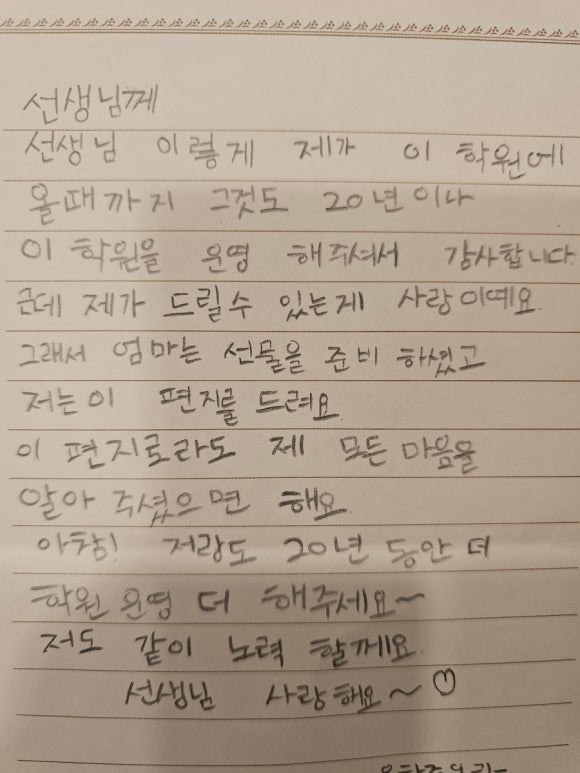 선생님께
선생님 이렇게 제가 이 학원에
올때까지 그것도 20년이나
이 학원을 운영 해주셔서 감사합니다.
근데 제가 드릴수 있는게 사랑이예요.
그래서 엄마는 선물을 준비 하셨고
저는 이 편지를 드려요.
이 편지로라도 제 모든 마음을
알아 주셨으면 해요.
아참! 저랑도 20년 동안 더
학원 운영 더 해주세요~
저도 같이 노력 할께요.
선생님 사랑해요~♡